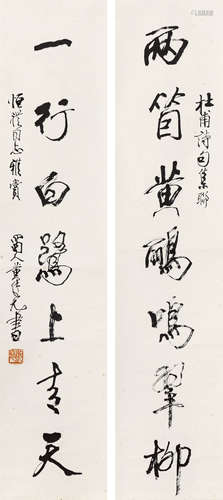 杜甫詩句集聯
兩箇黄鸝鳴翠柳
一行白鷺上青天
同志雅賞
蜀人黄純尧書